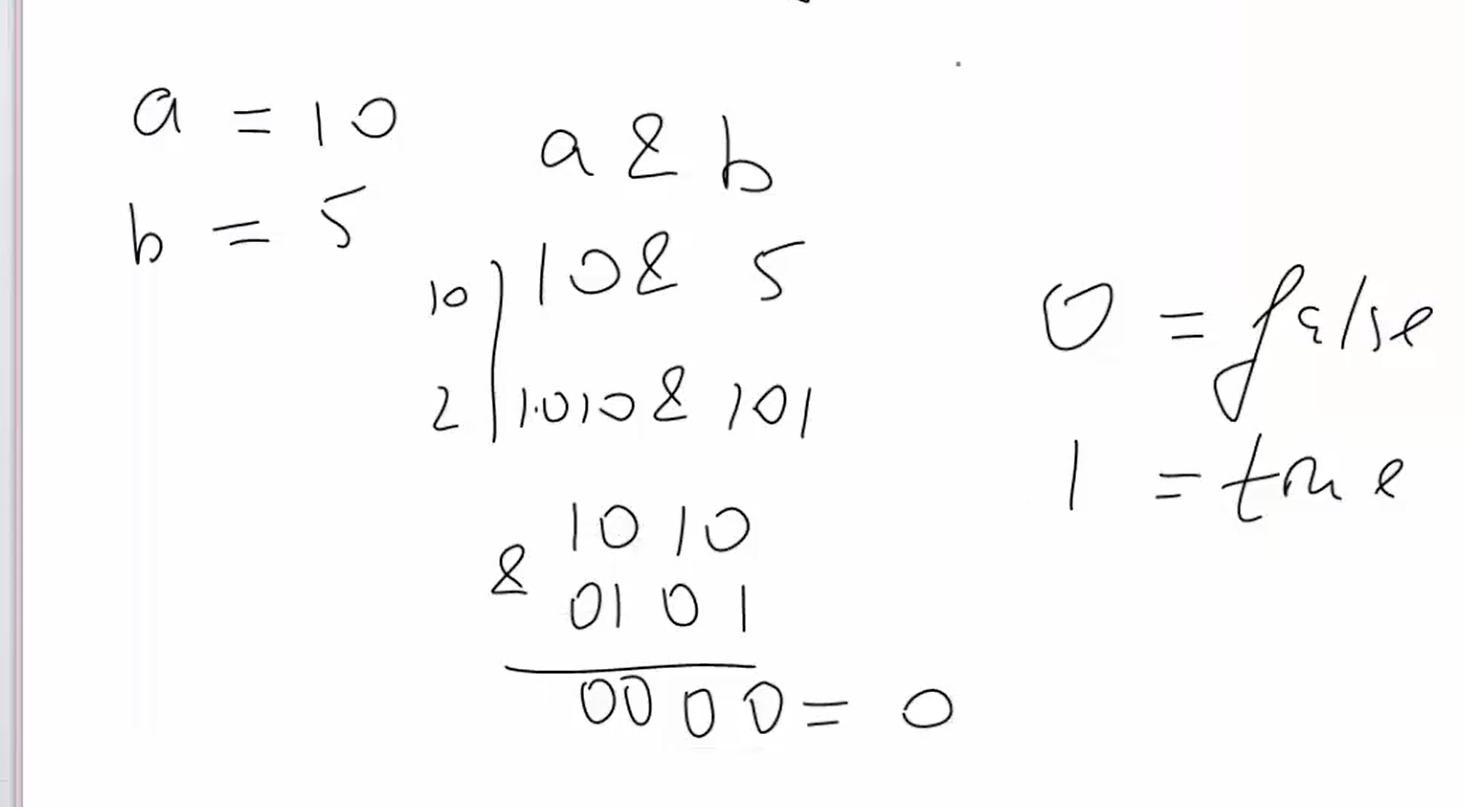 a = 10
b = 5
a & b
10 | 10 & 5
2 | 1010 & 101
1010
& 0101
0000 = 0
0 = false
1 = true